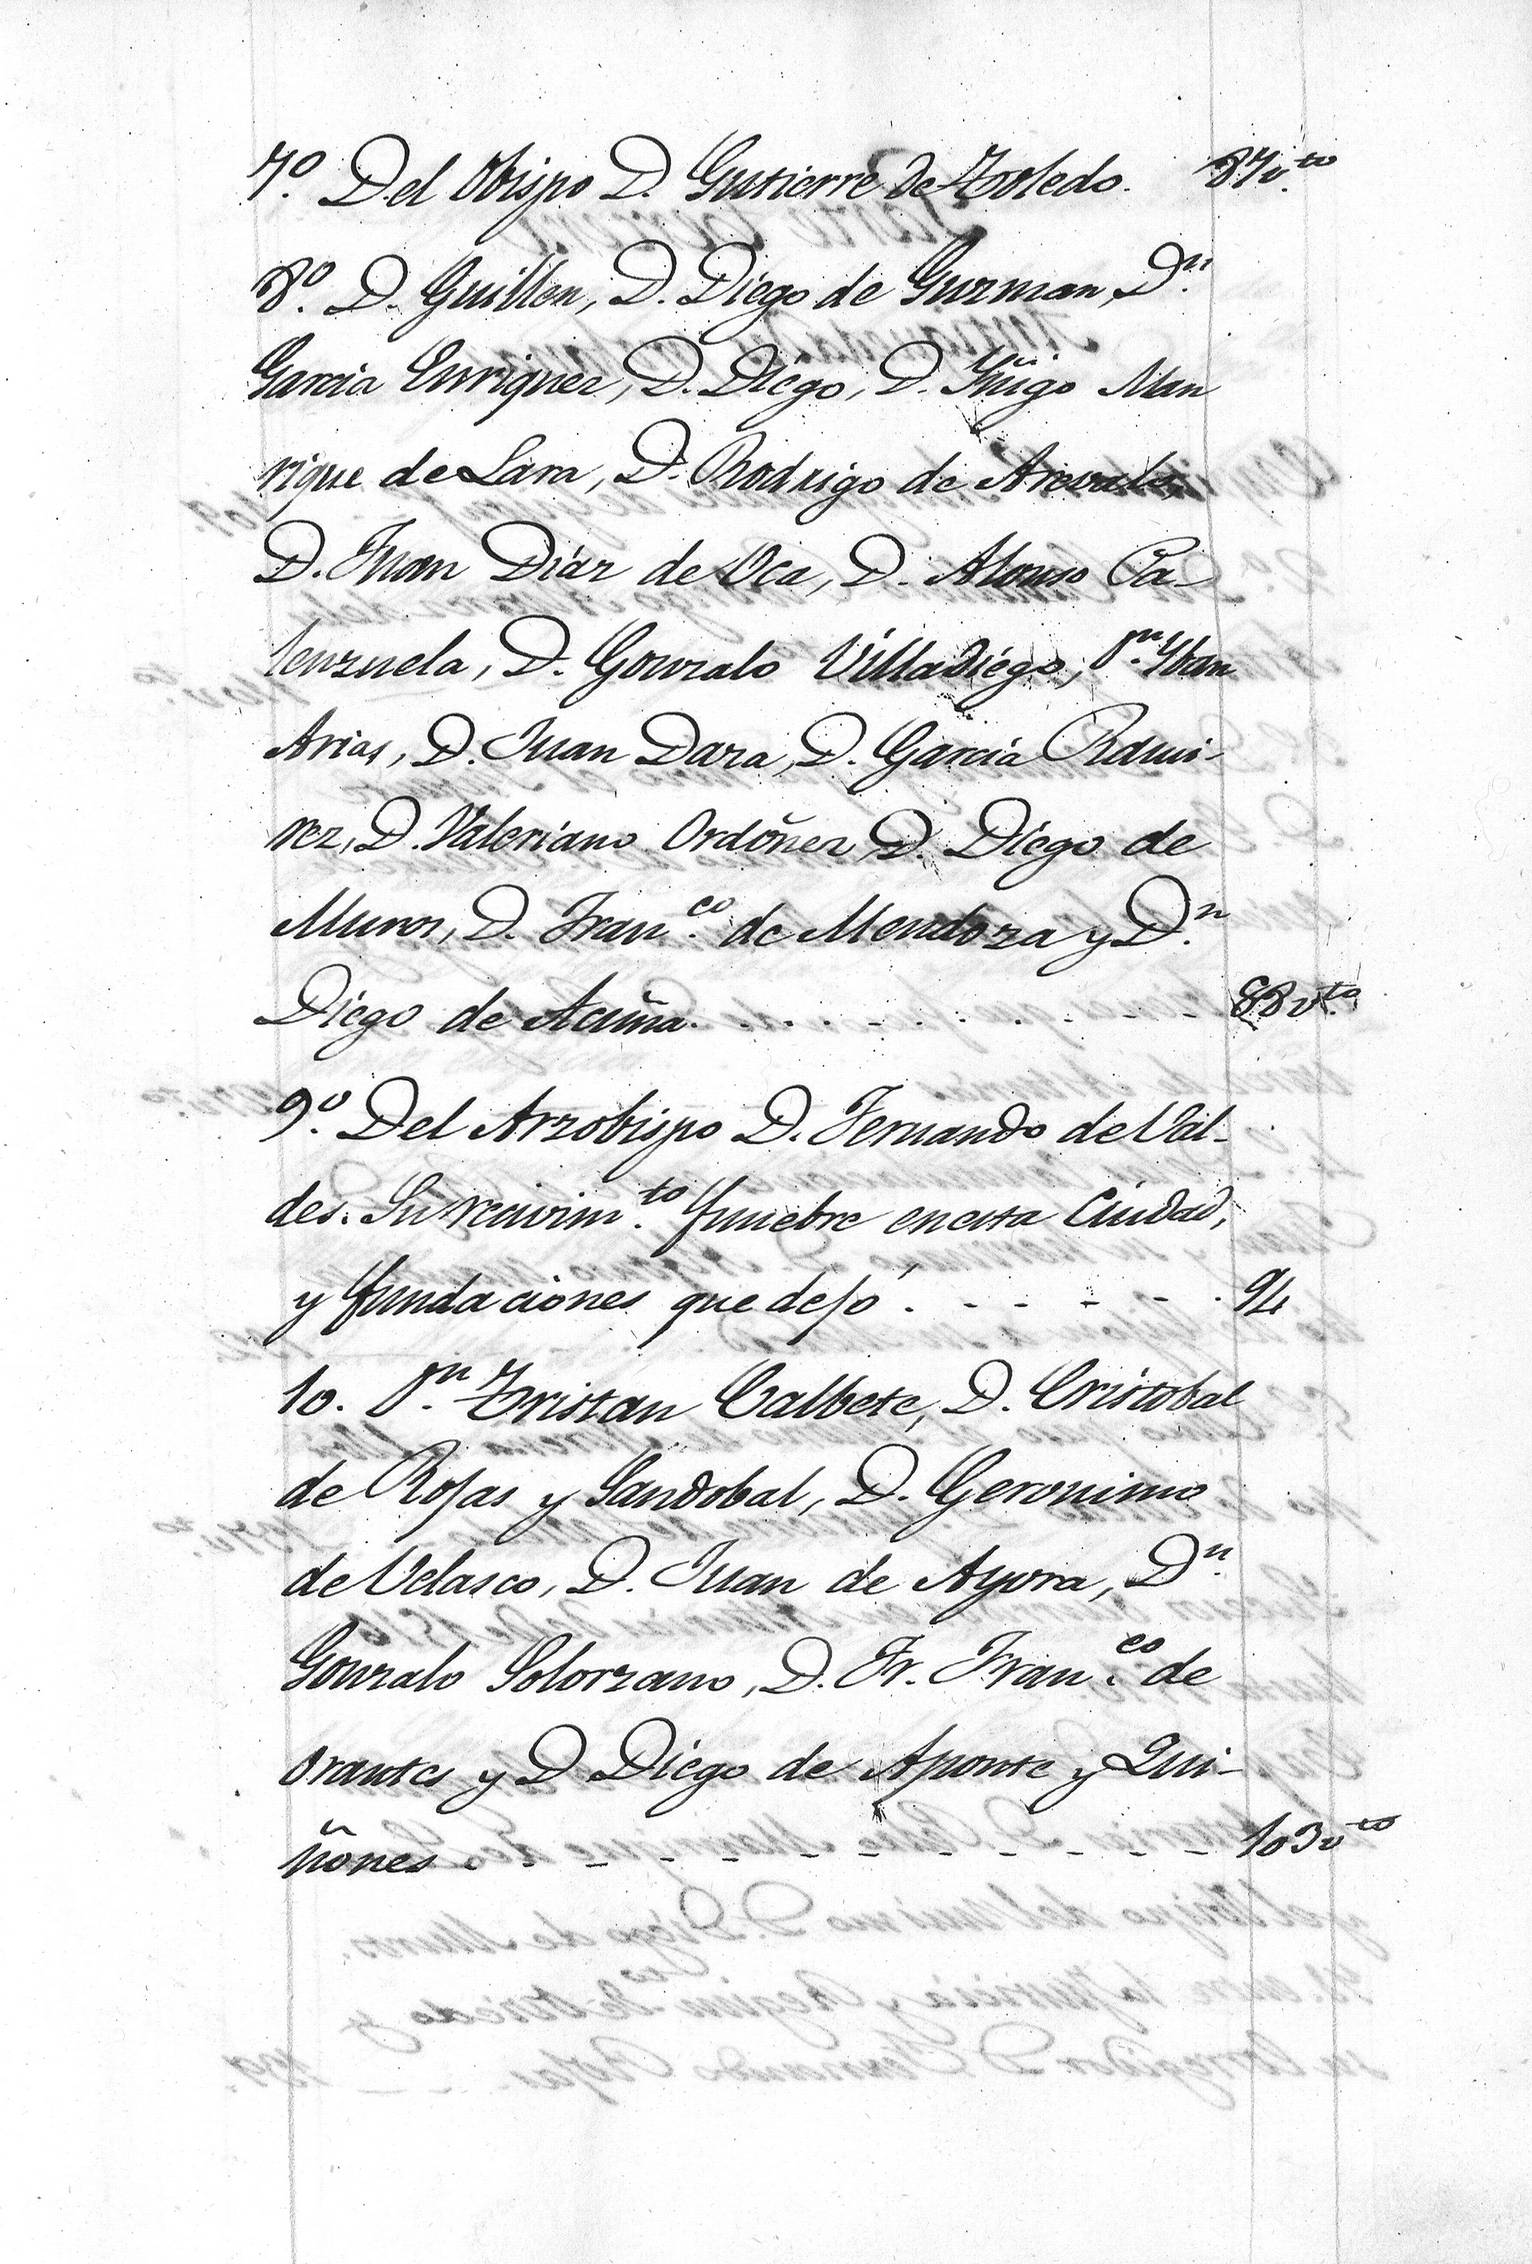 7º. Del Obispo D. Gutierre de Toledo. 87v.to
8º. D. Guillen, D. Diego de Guzman, D.n
Garcia Enriquez, D. Diego, D. Yñigo Man
rique de Lara, D. Rodrigo de Arevalo,
D. Juan Diáz de Oca, D. Alonso Pa-
lenzuela, D. Gonzalo Villadiégo, D.n Yban
Arias, D. Juan Daza, D. Garcia Rdmi-
rez, D. Valeriano Ordoñez, D. Diégo de
Muros, D. Fran.co de Mendoza y D.n
Diego de Acuña. - - - - - - - 88v.to
9º. Del Arzobispo D. Fernando de Val-
des. Su recivim.to funebre en esta Ciudad,
y fundaciones que dejó. - - - - - 94
10. D.n Tristan Calbete, D. Cristobal
de Rojas y Sandobal, D. Geronimo
de Velasco, D. Juan de Ayora, D.n
Gonzalo Solorzano, D. Fr. Fran.co de
Orantes y D. Diégo de Aponte y Qui-
ñones. - - - - - - - - - - - 103v.to